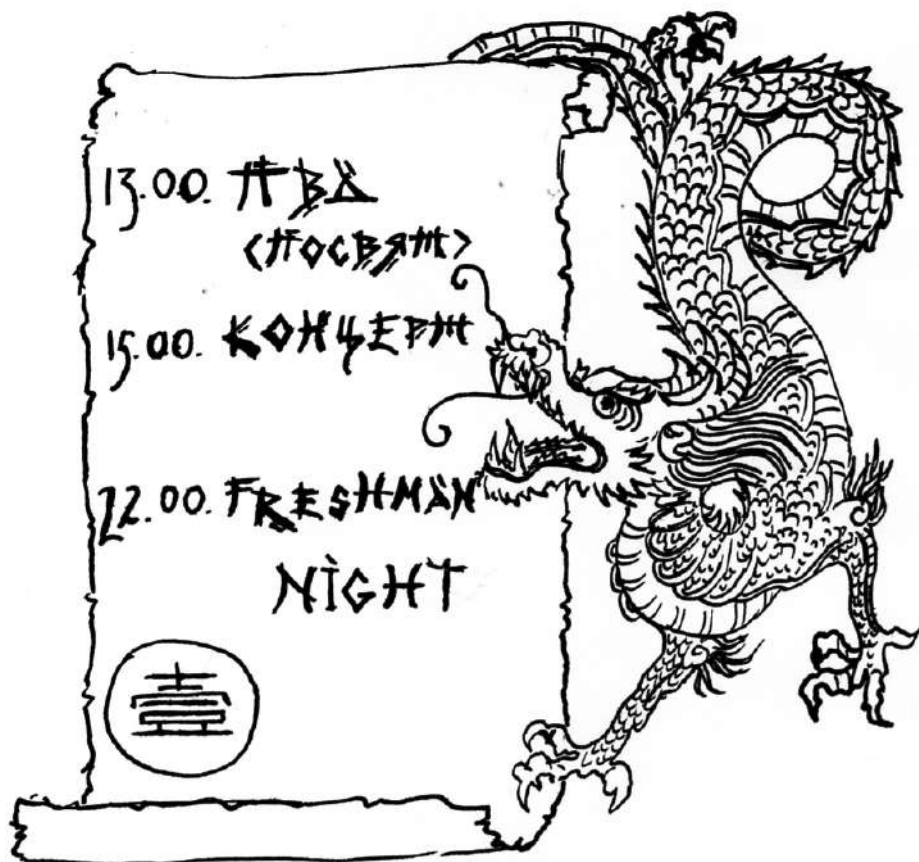 13.00. ПВД
<ПОСВЯТ>
15.00. КОНЦЕРТ
22.00. FRESHMAN
NIGHT
壹